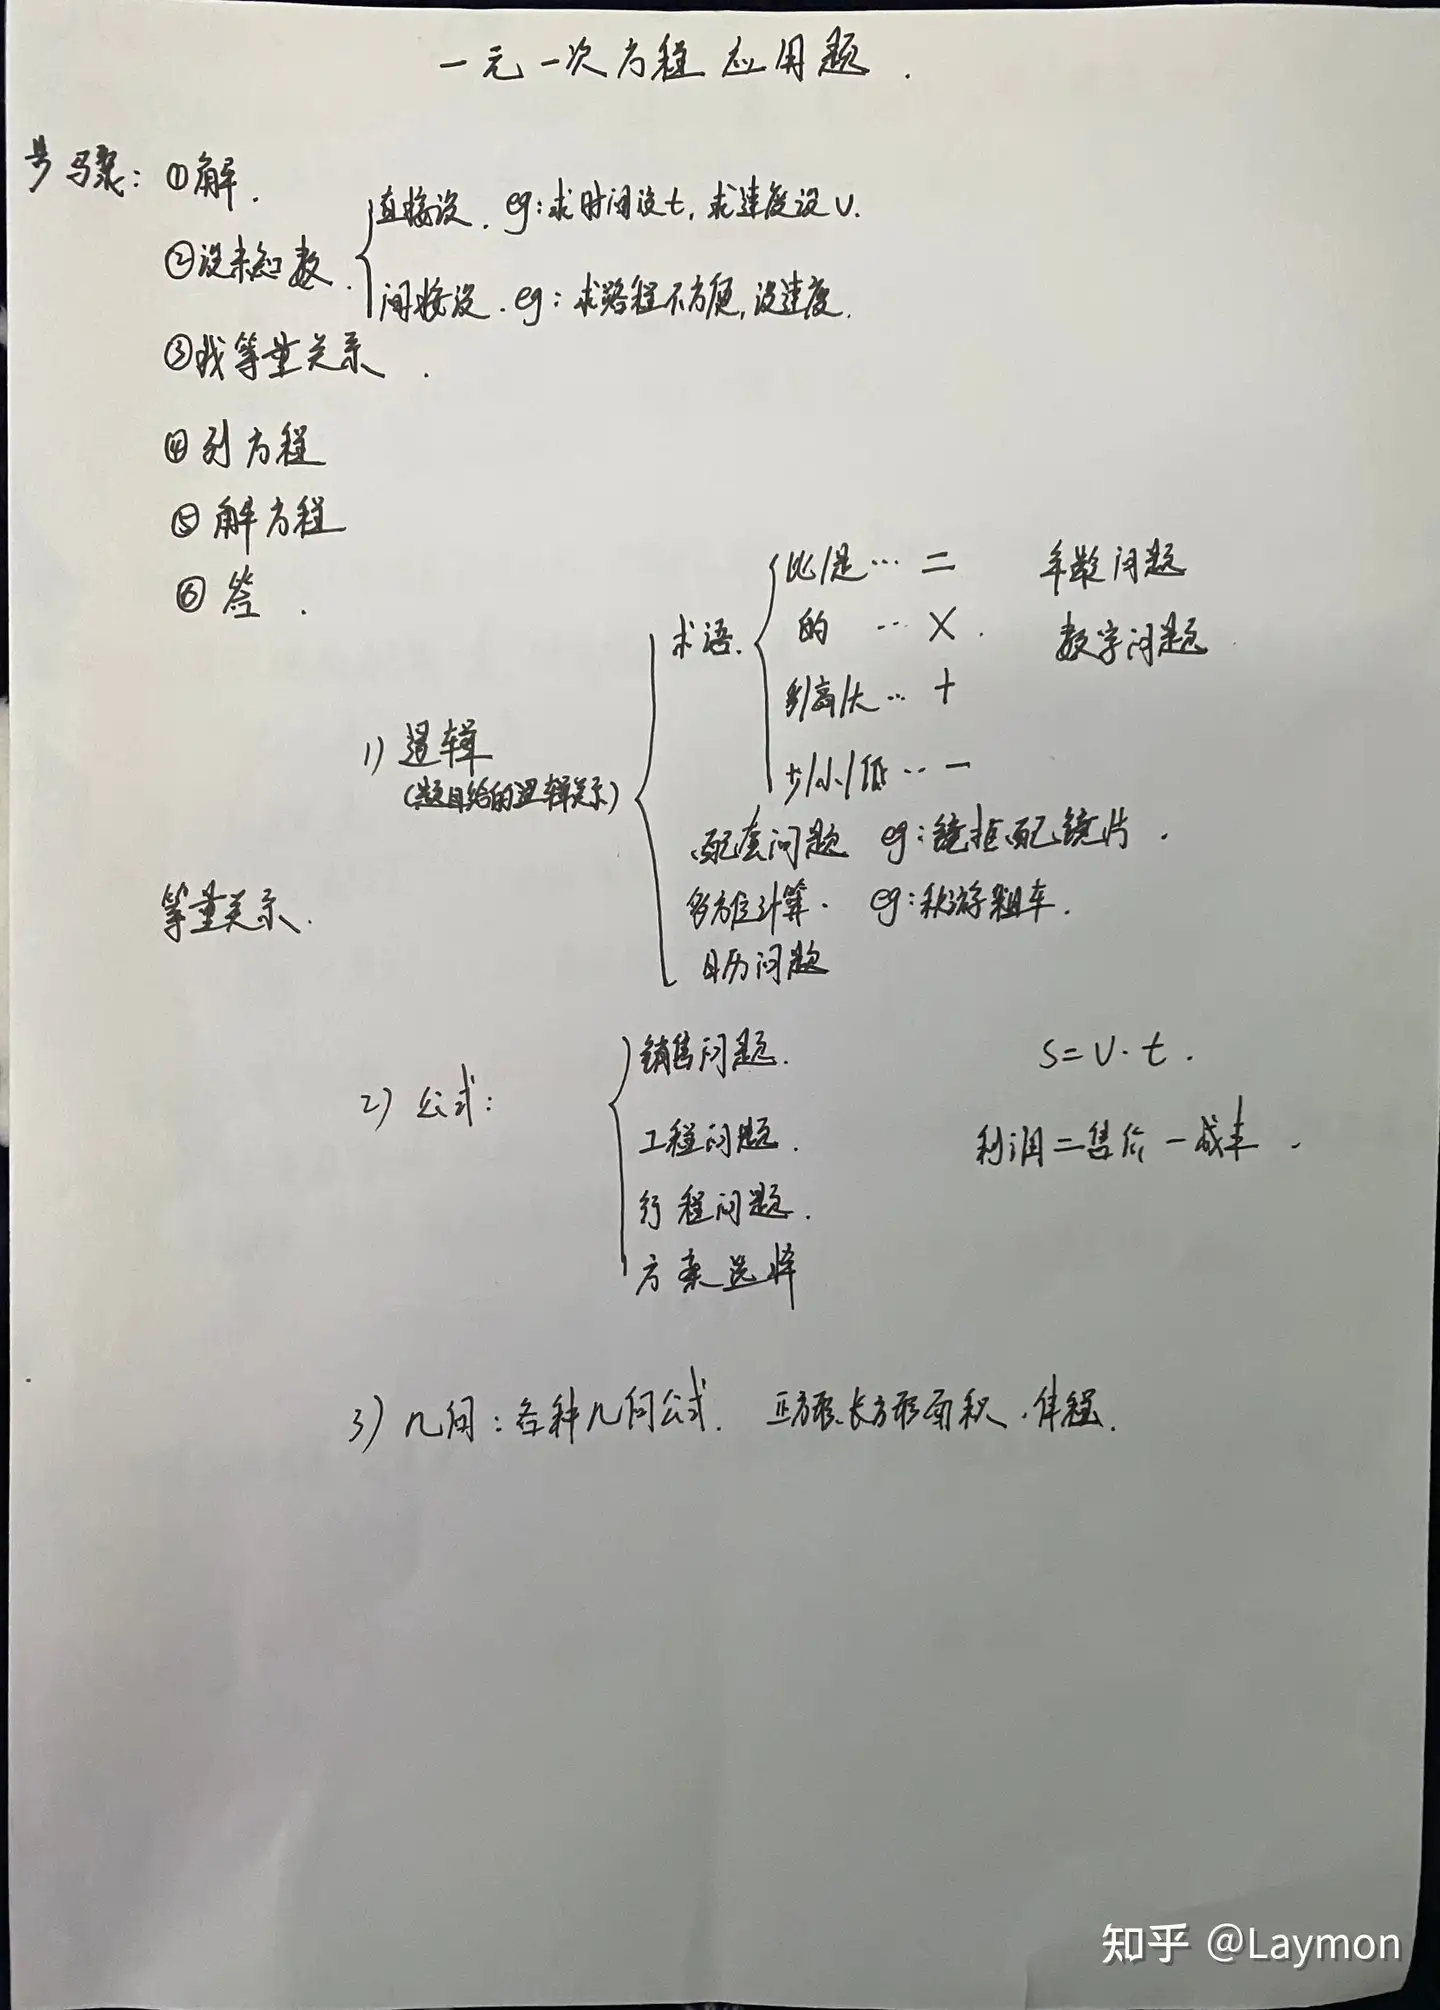 一元一次方程应用题.
步骤: ①解.
②设未知数.
直接设. eg:求时间设t,求速度设v.
间接设. eg:求路程不方便,设速度.
③找等量关系.
④列方程
⑤解方程
⑥答.
等量关系.
1)逻辑
(题目给的逻辑关系)
术语.
比/是…=
的…×.
多/高/大…+
少/小/低…-
年龄问题
数字问题
配套问题 eg:镜框配镜片.
多方位计算. eg:秋游租车.
日历问题
2)公式:
销售问题.
工程问题.
行程问题.
方案选择
S=v·t.
利润=售价-成本.
3)几何:各种几何公式. 正方形、长方形面积.体程.
知乎 @Laymon